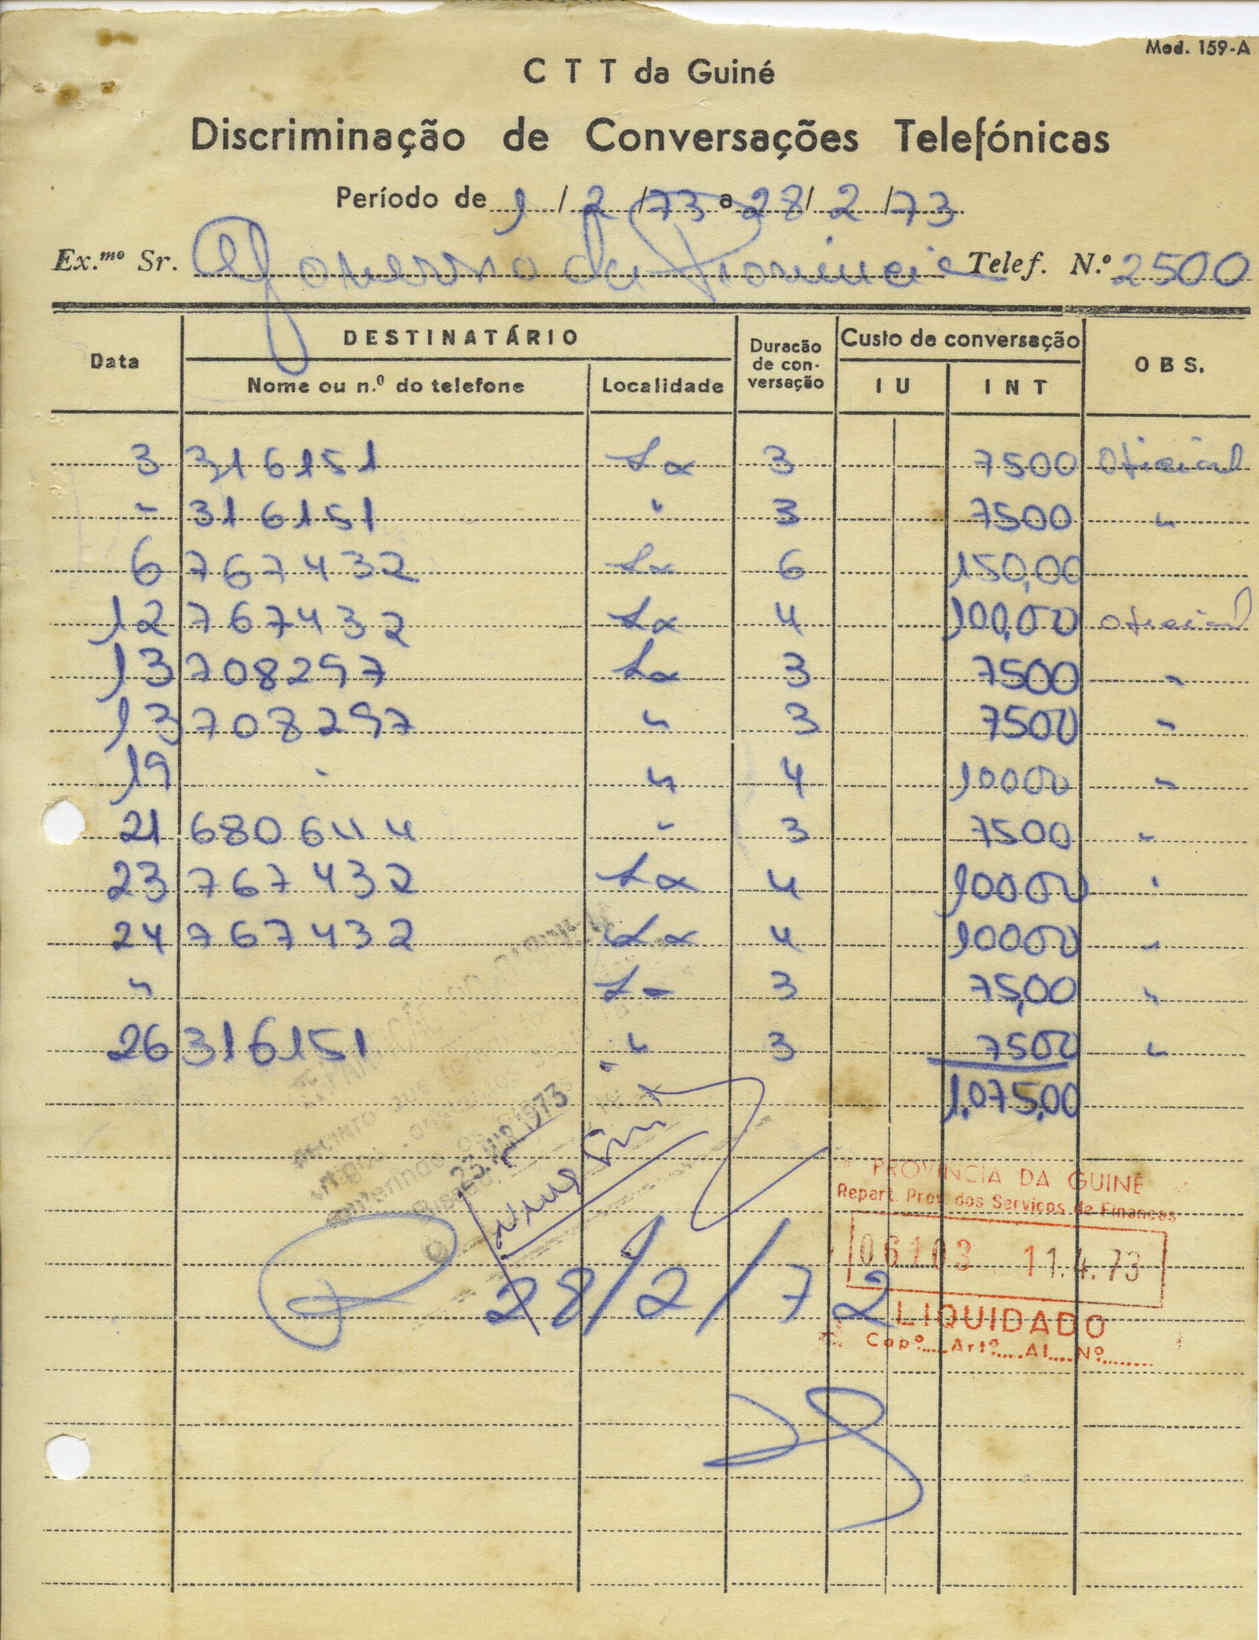 Mod. 159-A
C T T da Guiné
Discriminação de Conversações Telefónicas
Período de 1 / 2 / 73 a 28 / 2 / 73
Ex.mo Sr. Governo da Provincia Telef. N.º 2500
Data DESTINATÁRIO Duracão de con-versação Custo de conversação O B S.
Nome ou n.º do telefone Localidade I U I N T
3 316151 Lx 3 7500 Oficial
" 316151 " 3 7500 "
6 767432 Lx 6 150,00
12 767432 Lx 4 100,00 oficial
13 708297 Lx 3 7500 "
13 708297 " 3 7500 "
19 " " 4 10000 "
21 680644 " 3 7500 "
23 767432 Lx 4 10000 "
24 767432 Lx 4 10000 "
" Lx 3 75,00 "
26 316151 " 3 7500 "
1.075,00
1973
PROVINCIA DA GUINÉ
Repart. Prov. dos Serviços de Finanças
06103 11.4.73
28/2/72
LIQUIDADO
Capº.... Artº.... Al.... Nº.......